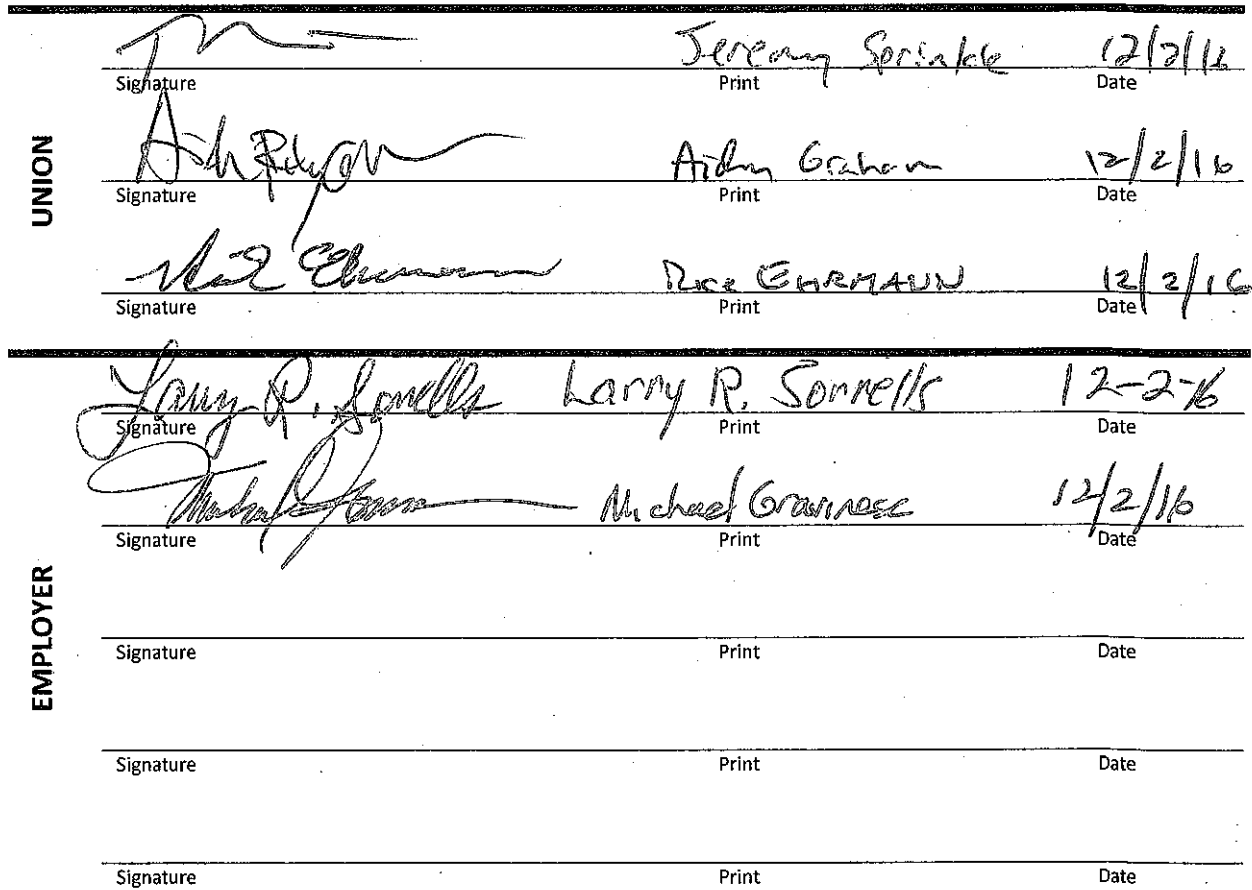 UNION
Jeremy Sprinkle 12/2/16
Signature Print Date
Aidan Graham 12/2/16
Signature Print Date
EHRMANN 12/2/16
Signature Print Date
EMPLOYER
Larry R. Sorrells Larry R. Sorrells 12-2-16
Signature Print Date
Michael 12/2/16
Signature Print Date
Signature Print Date
Signature Print Date
Signature Print Date